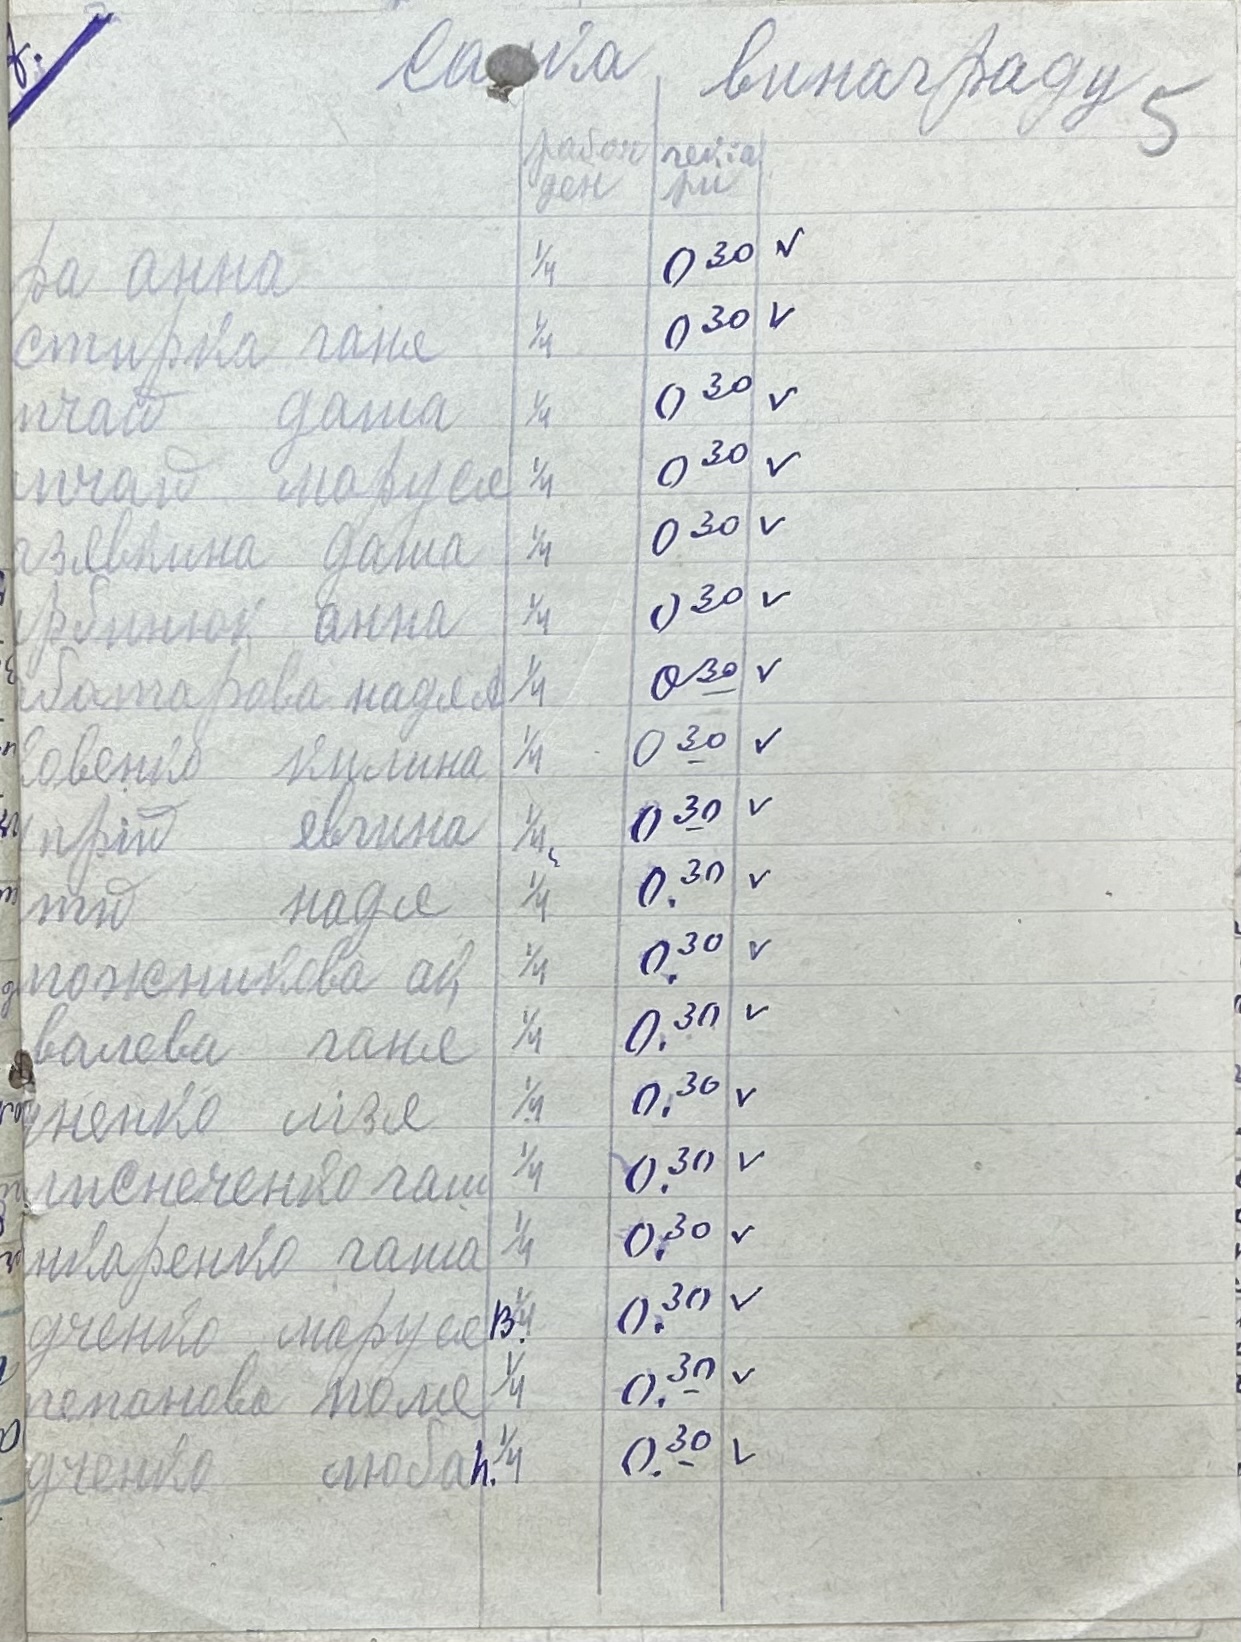 винаграду 5
рабоч гекта
ден ри
ра анна 1/4 0 30 v
стирка ганя 1/4 0 30 v
тчай даша 1/4 0 30 v
тчай маруся 1/4 0 30 v
азявкина даша 1/4 0 30 v
рбинюк анна 1/4 0 30 v
батарова надя 1/4 0 30 v
ковенко килина 1/4 0 30 v
прій явгина 1/4 0 30 v
тій надя 1/4 0.30 v
пожникова 1/4 0.30 v
валева ганя 1/4 0.30 v
ненко лізя 1/4 0.30 v
лиснеченко гаш 1/4 0.30 v
нкаренко гаша 1/4 0.30 v
дченко маруся В. 1/4 0.30 v
тепанова поля 1/4 0.30 v
дченко люба h. 1/4 0.30 v